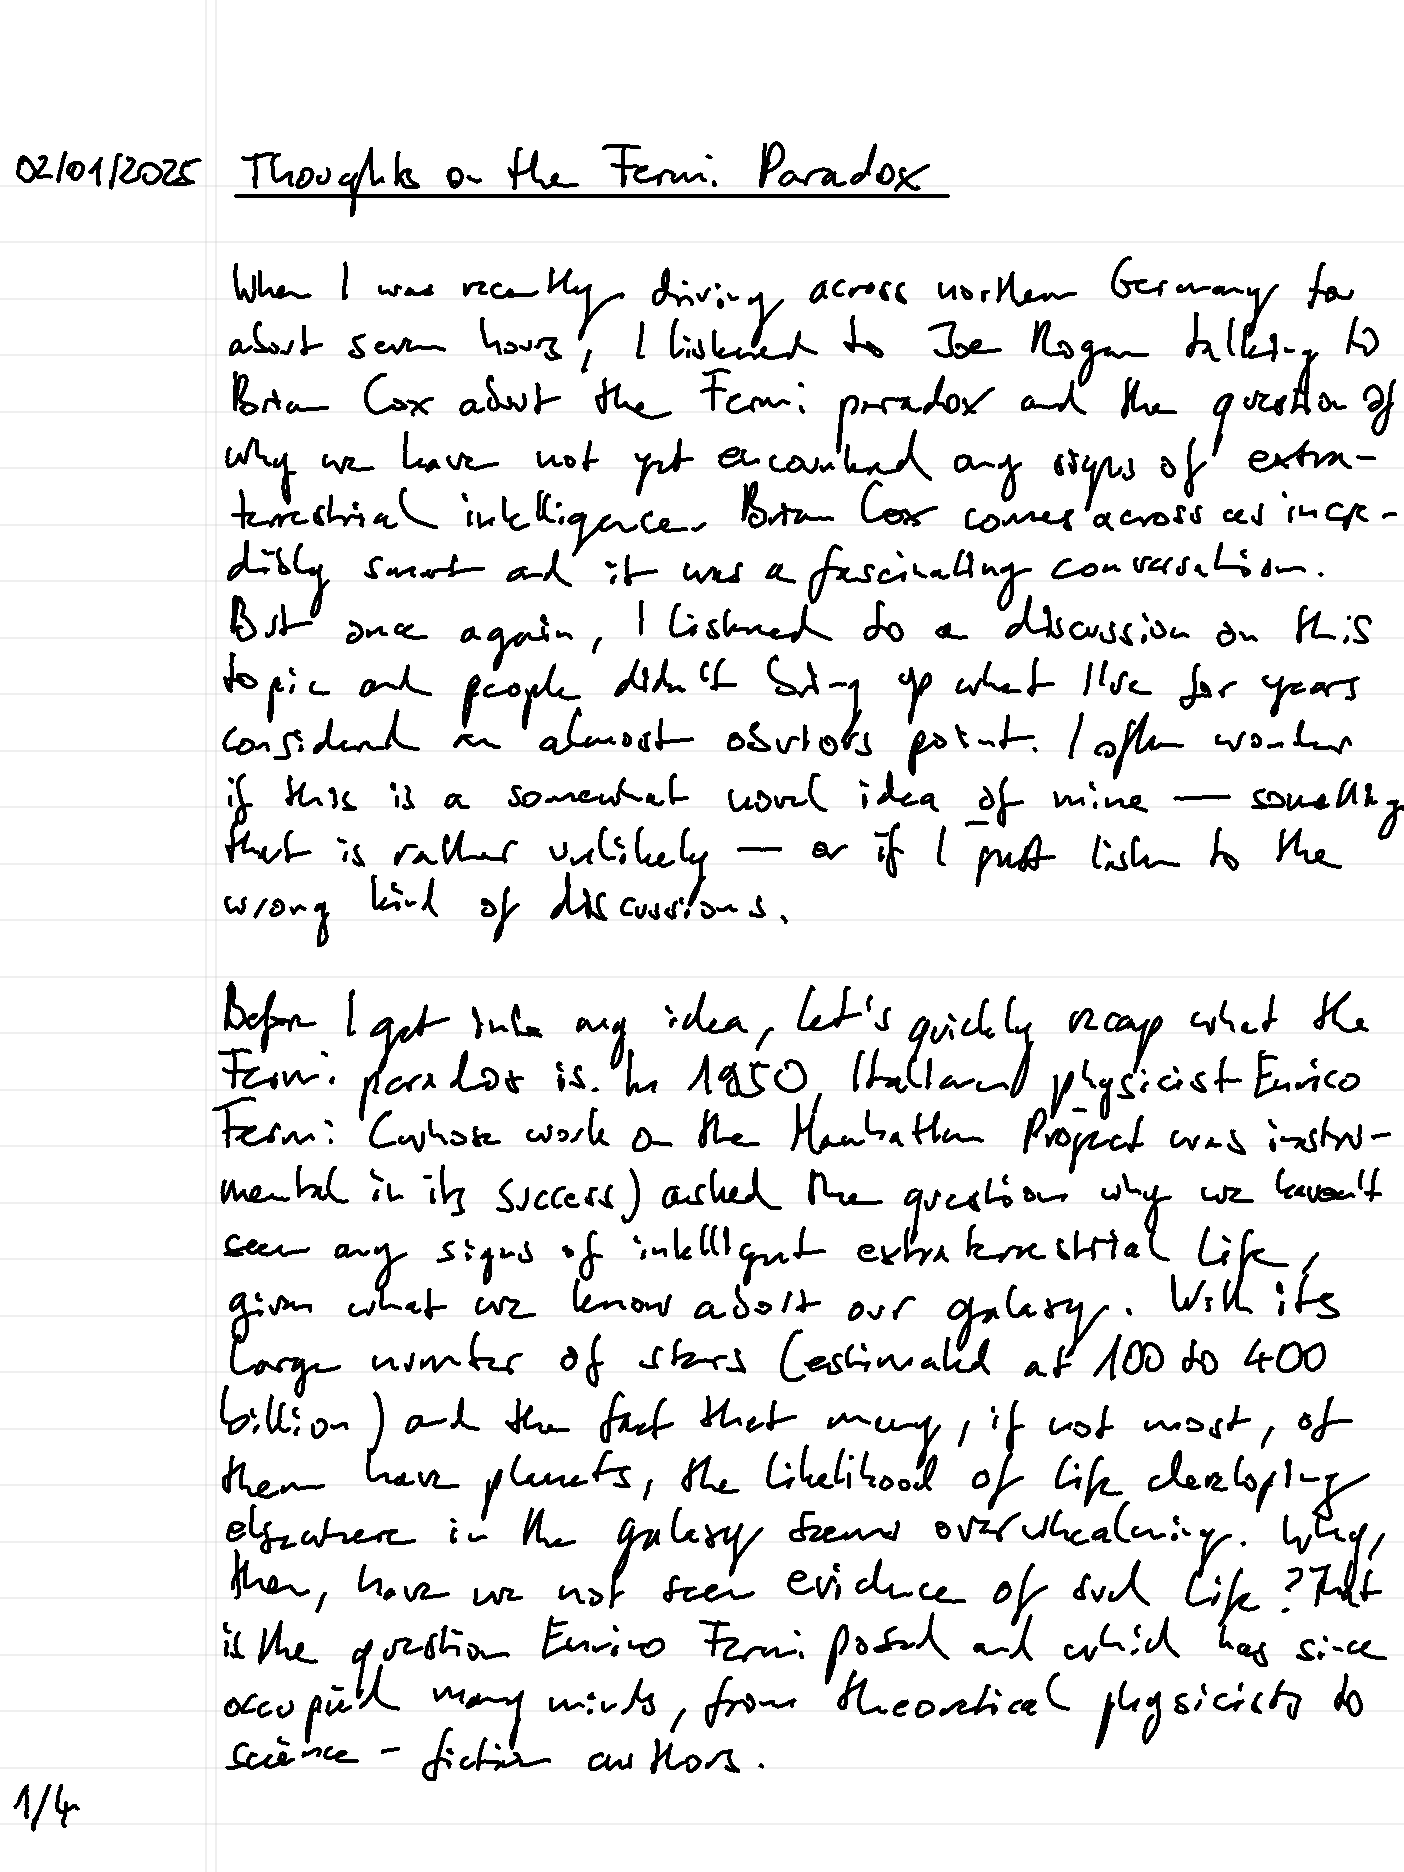 02/01/2025 Thoughts on the Fermi Paradox
When I was recently driving across northern Germany for
about seven hours, I listened to Joe Rogan talking to
Brian Cox about the Fermi paradox and the question of
why we have not yet encountered any signs of extra-
terrestrial intelligence. Brian Cox comes across as incre-
dibly smart and it was a fascinating conversation.
But once again, I listened to a discussion on this
topic and people didn't bring up what I've for years
considered an almost obvious point. I often wonder
if this is a somewhat novel idea of mine — something
that is rather unlikely — or if I just listen to the
wrong kind of discussions.
Before I get into my idea, let's quickly recap what the
Fermi paradox is. In 1950, Italian physicist Enrico
Fermi (whose work on the Manhattan Project was instru-
mental in its success) asked the question why we haven't
seen any signs of intelligent extraterrestrial life,
given what we know about our galaxy. With its
large number of stars (estimated at 100 to 400
billion) and the fact that many, if not most, of
them have planets, the likelihood of life developing
elsewhere in the galaxy seems overwhealming. Why,
then, have we not seen evidence of such life? That
is the question Enrico Fermi posed and which has since
occupied many minds, from theoretical physicists to
science-fiction authors.
1/4